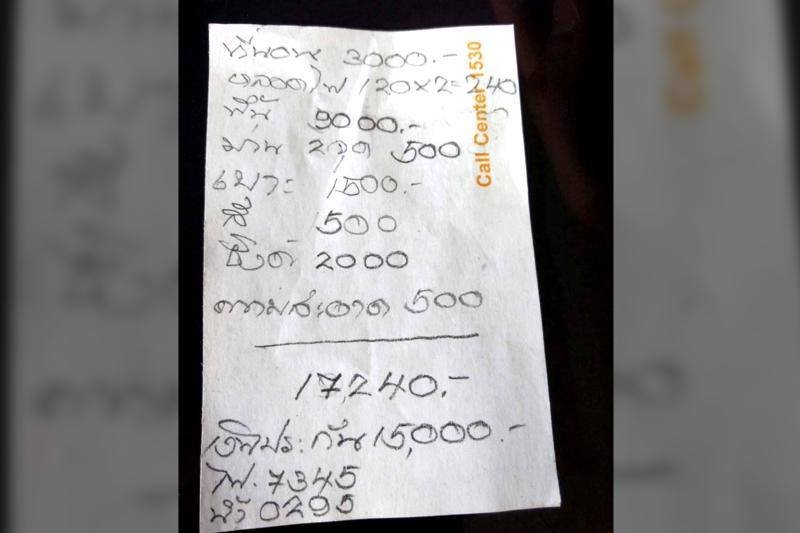 ที่นอน 3000.-
หลอดไฟ 120x2=240
พื้น 9000.-
ม่าน 2 ชุด 500
เบาะ 1500.-
500
ซิงค์ 2000
ความสะอาด 500
17,240.-
เงินประกัน 15,000.-
ไฟ. 7345
น้ำ 0295
Call Center 1530